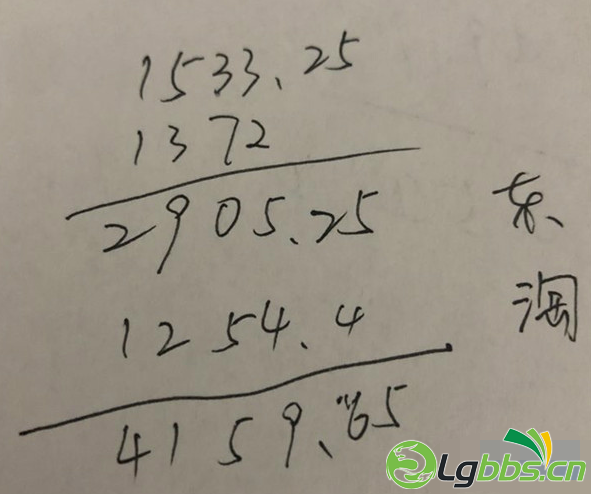 1533.25
1372
2905.25 东
1254.4 淘
4159.65
Lgbbs.cn